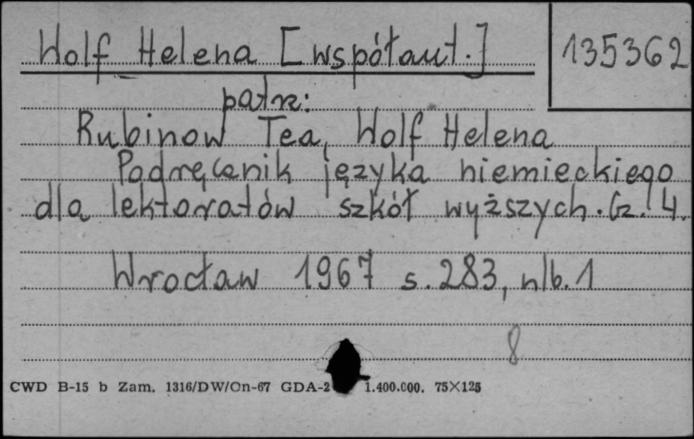 Wolf Helena [współaut.]
135362
patrz:
Rubinow Tea, Wolf Helena
Podręcznik języka niemieckiego
dla lektoratów szkół wyższych. Cz. 4.
Wrocław 1967 s. 283, nlb. 1
8
CWD B-15 b Zam. 1316/DW/On-67 GDA-2 1.400.000. 75×125